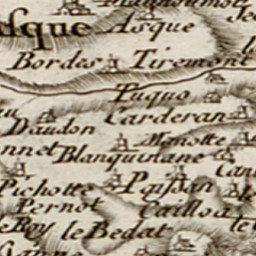 sque Asque
Bordes Tiremont
Tuquo
Carderan
Daudon
Monotte
nnet Blanquinane
Pichotte Paysan
Pernot Cailloa
le Roy le Bedat